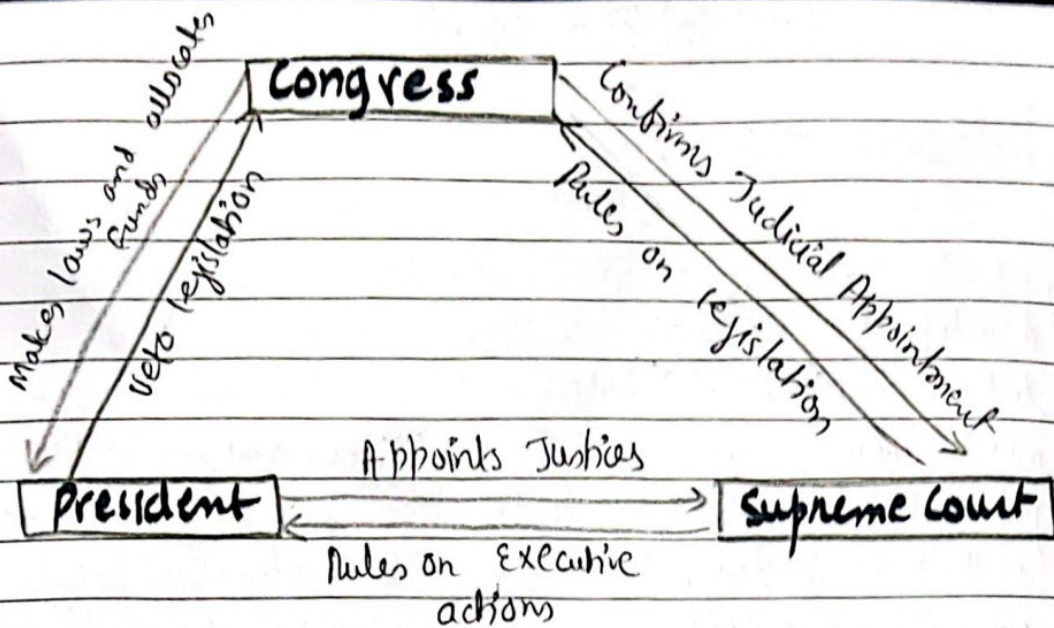 Congress
Makes laws and allocates
funds
Veto legislation
Confirms Judicial Appointment
Rules on legislation
Appoints Justices
President
Supreme Court
Rules on Executive
actions